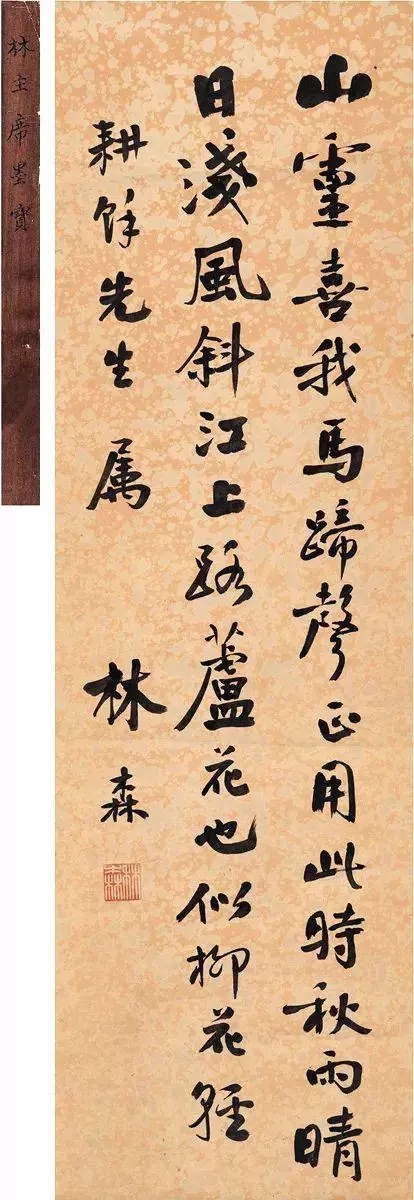 山靈喜我馬蹄聲正用此時秋雨晴
日淺風斜江上路蘆花也似柳花輕
耕餘先生属
林森
林森
林主席墨寶